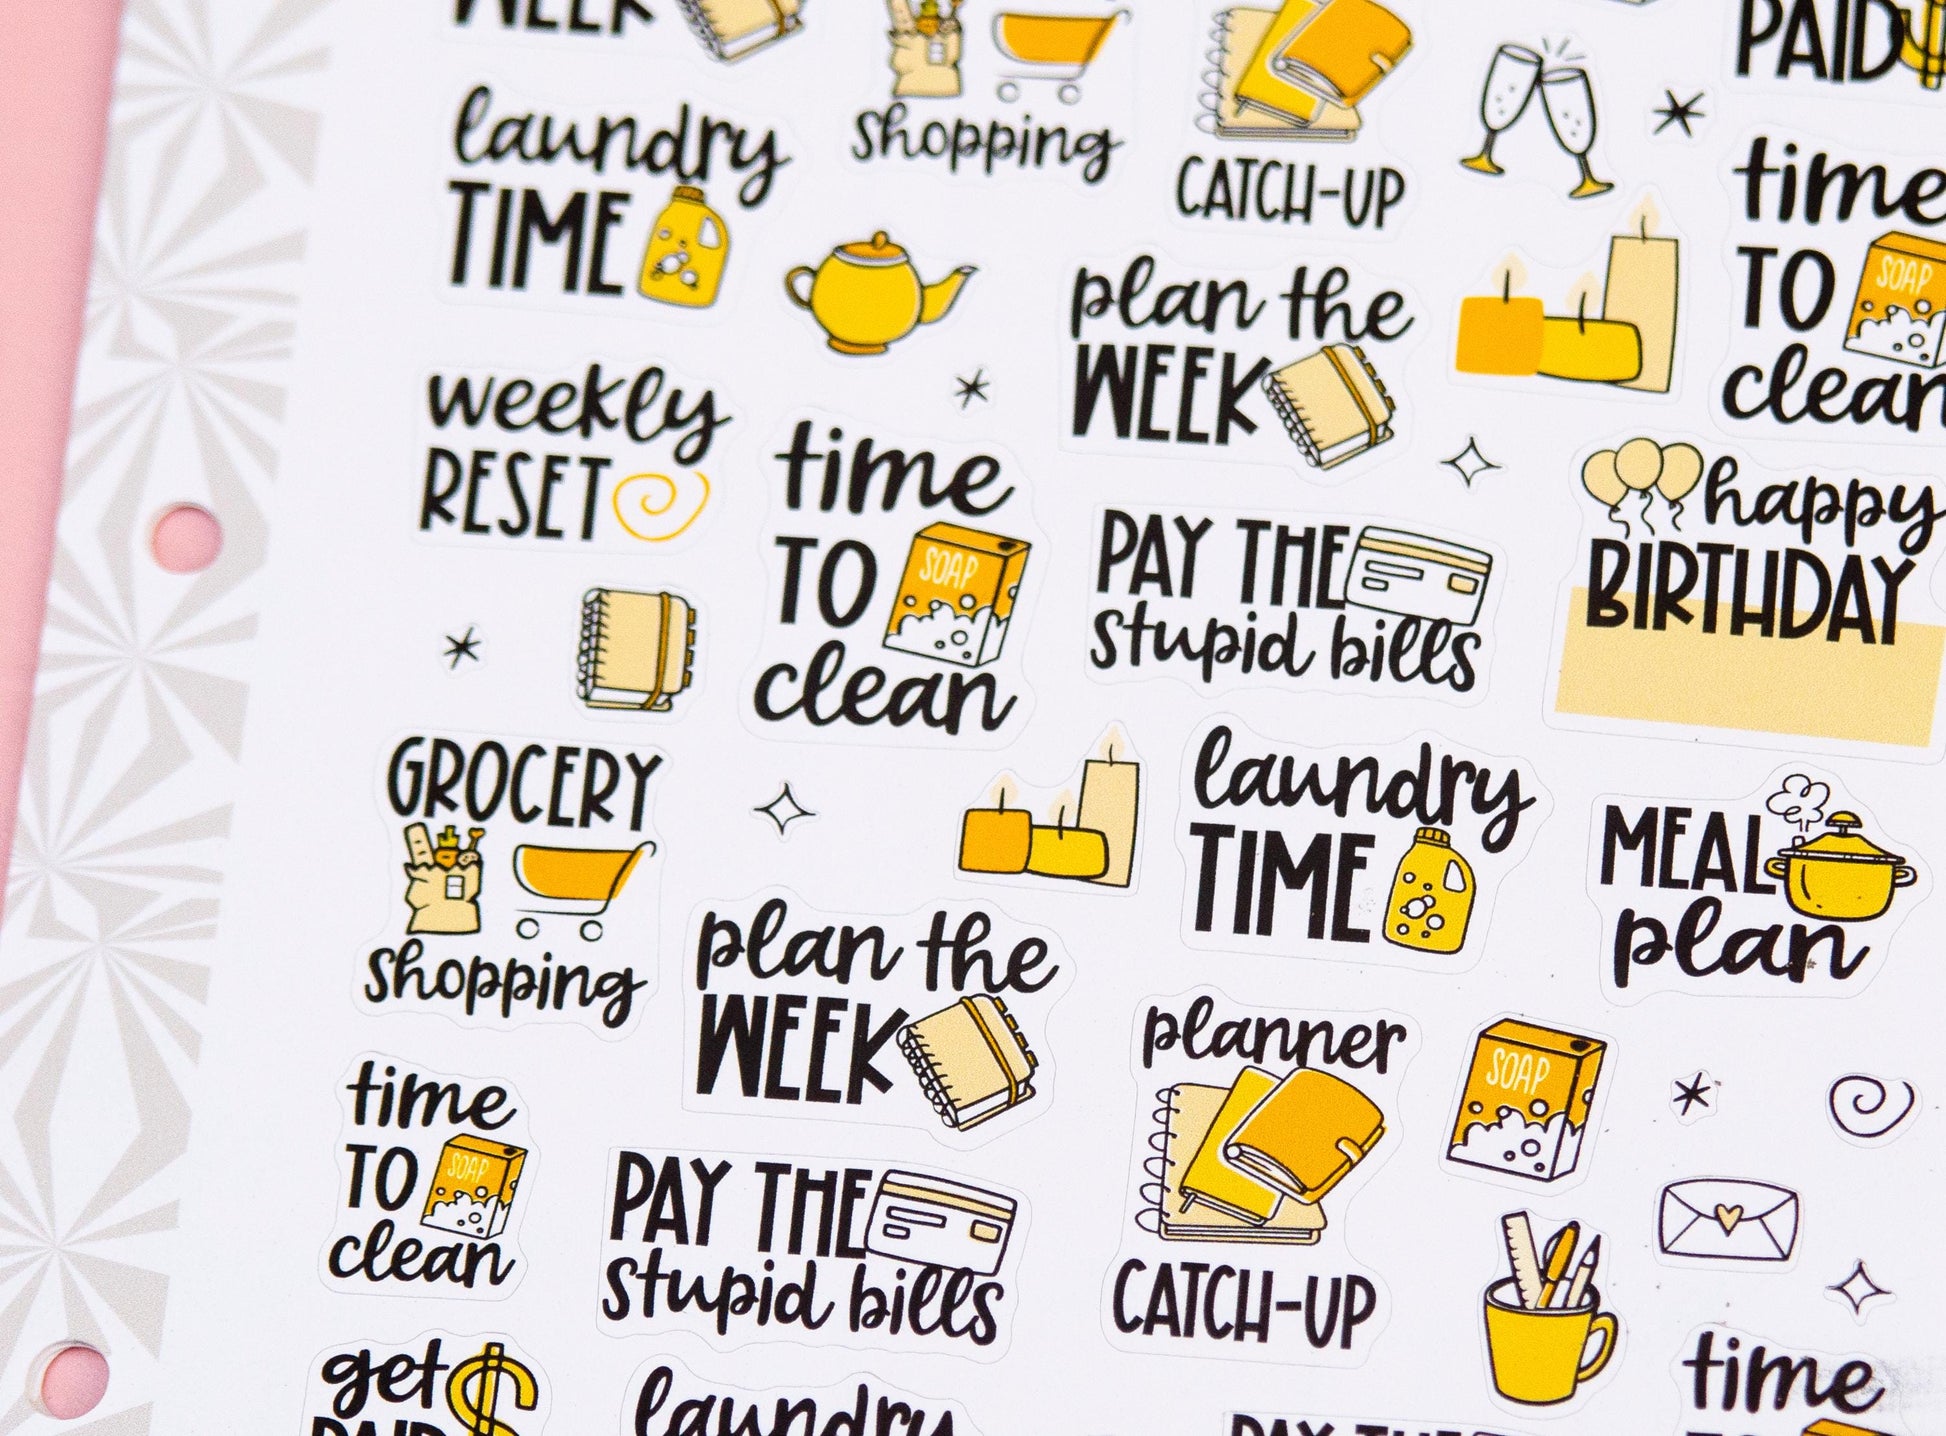 WEEK
shopping
CATCH-UP
PAID
laundry
TIME
time
TO
SOAP
clean
plan the
WEEK
weekly
RESET
time
TO
SOAP
clean
PAY THE
stupid bills
happy
BIRTHDAY
GROCERY
shopping
laundry
TIME
MEAL
plan
plan the
WEEK
planner
CATCH-UP
SOAP
time
TO
SOAP
clean
PAY THE
stupid bills
get
PAID
laundry
PAY THE
time